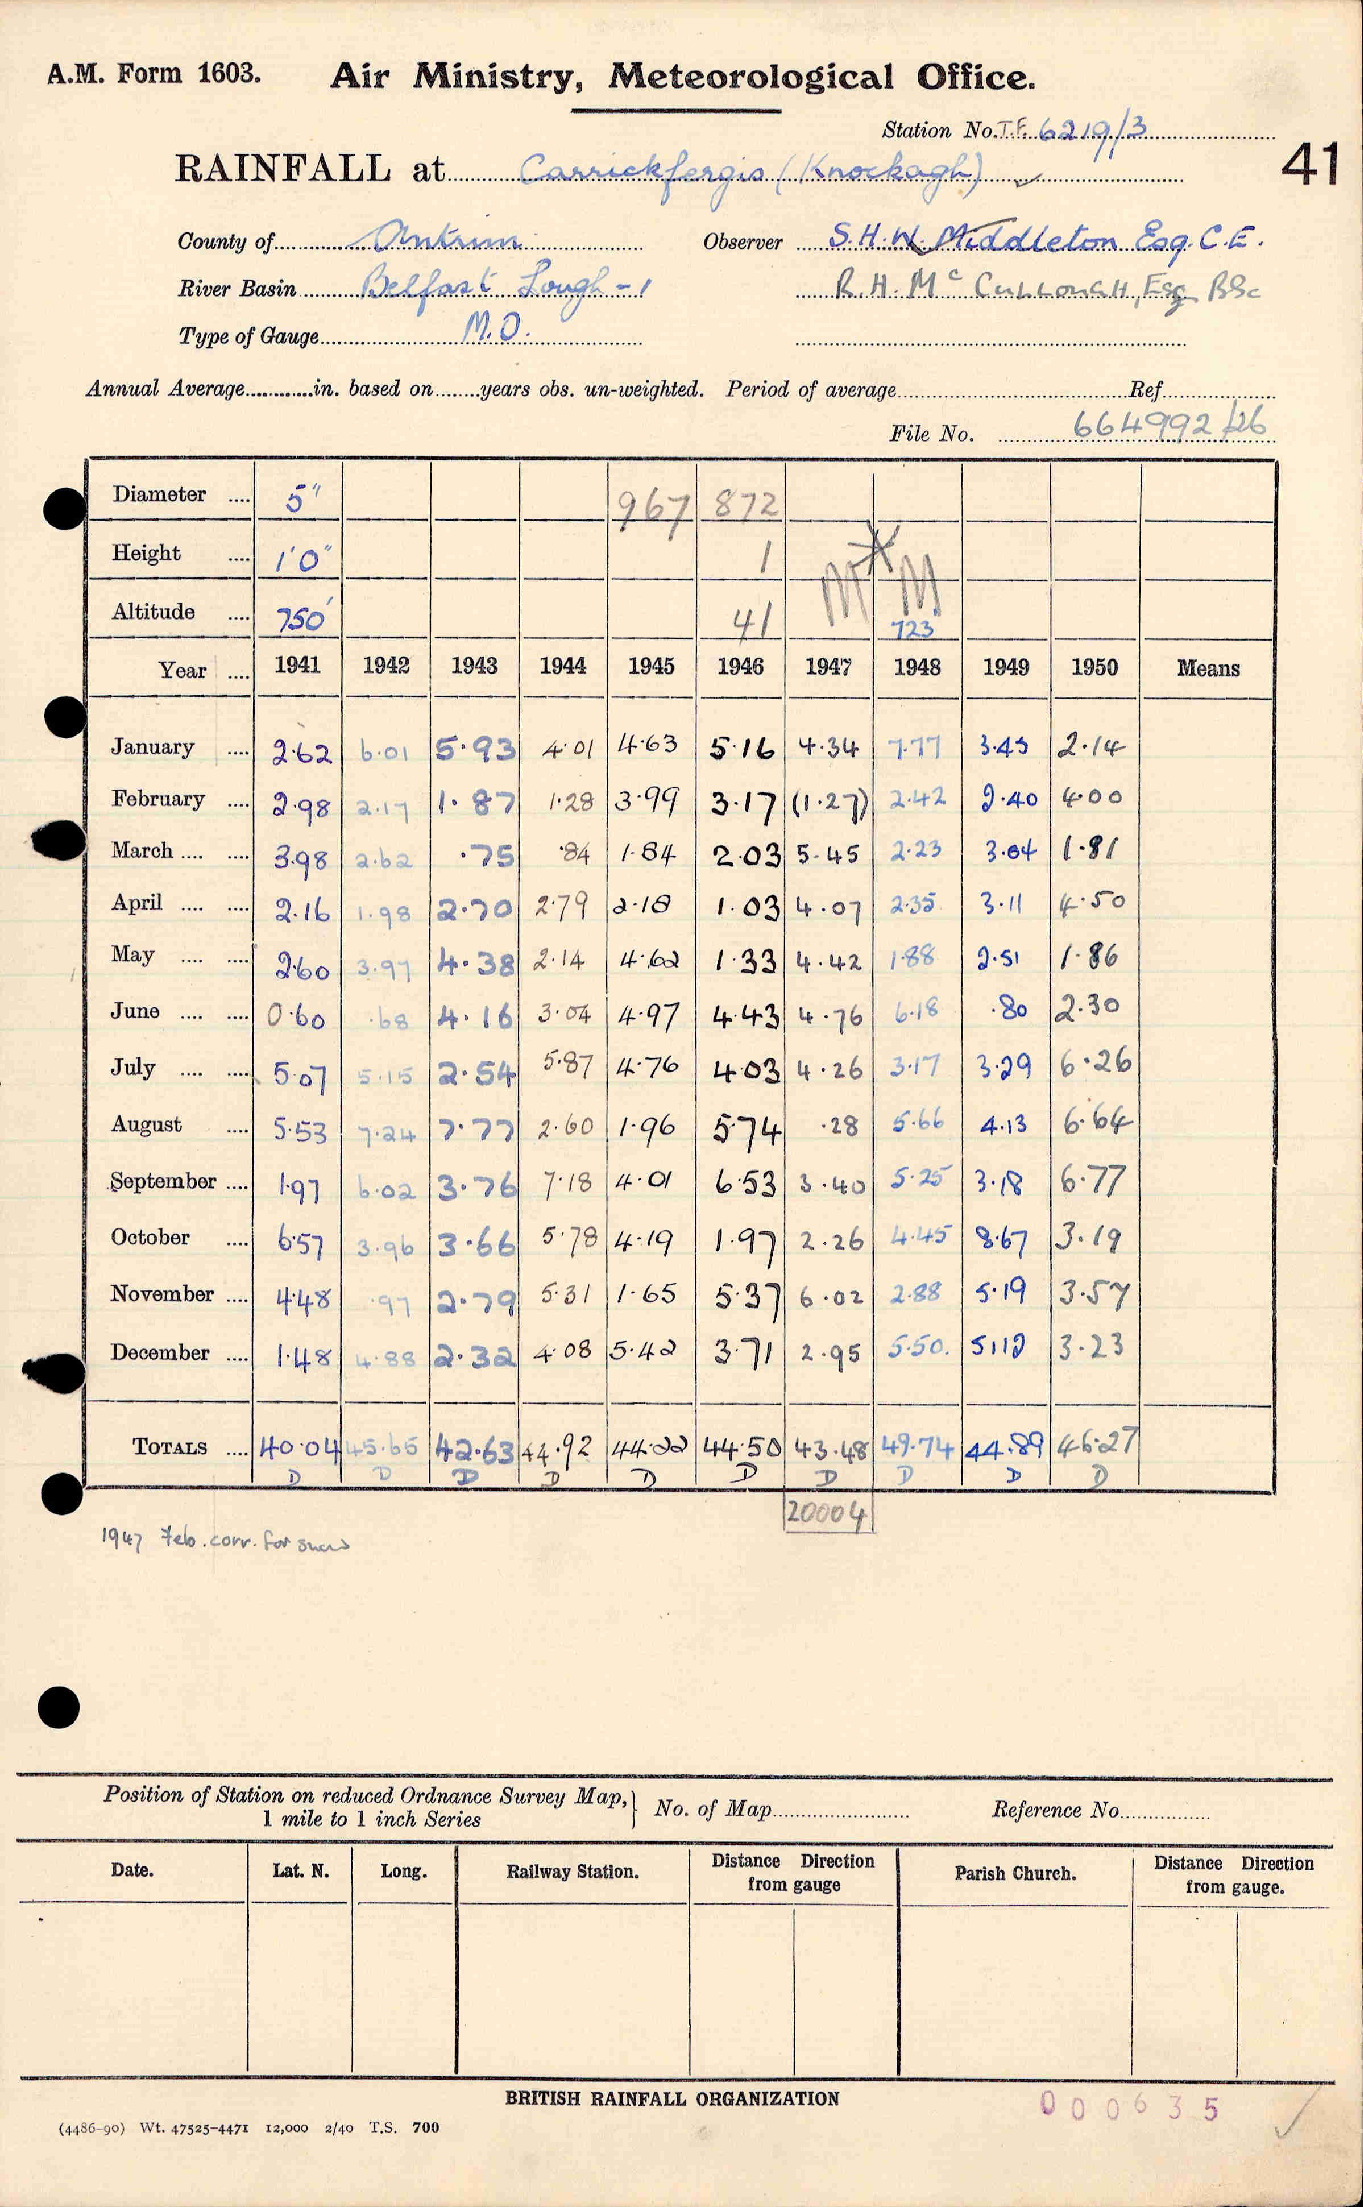 A.M. Form 1603. Air Ministry, Meteorological Office.
Station No. T.F. 6219/3
RAINFALL at Carrickfergis (Knockagh) ✓
41
County of Antrim Observer S.H.W. Middleton Esq. C.E.
River Basin Belfast Lough - 1 R.H. McCullough, Esq BSc
Type of Gauge M.O.
Annual Average............in. based on........years obs. un-weighted. Period of average Ref
File No. 664992/26
Diameter .... 5" 967 872
Height .... 1'0" 1
Altitude .... 750' 41 M * M 723
Year .... 1941 1942 1943 1944 1945 1946 1947 1948 1949 1950 Means
January .... 2.62 6.01 5.93 4.01 4.63 5.16 4.34 7.77 3.45 2.14
February .... 2.98 2.17 1.87 1.28 3.99 3.17 (1.27) 2.42 2.40 4.00
March .... .... 3.98 2.62 .75 .84 1.84 2.03 5.45 2.23 3.04 1.81
April .... .... 2.16 1.98 2.70 2.79 2.18 1.03 4.07 2.35 3.11 4.50
May .... .... 2.60 3.97 4.38 2.14 4.62 1.33 4.42 1.88 2.51 1.86
June .... .... 0.60 .68 4.16 3.04 4.97 4.43 4.76 6.18 .80 2.30
July .... .... 5.07 5.15 2.54 5.87 4.76 4.03 4.26 3.17 3.29 6.26
August .... 5.53 7.24 7.77 2.60 1.96 5.74 .28 5.66 4.13 6.64
September .... 1.97 6.02 3.76 7.18 4.01 6.53 3.40 5.25 3.18 6.77
October .... 6.57 3.96 3.66 5.78 4.19 1.97 2.26 4.45 8.67 3.19
November .... 4.48 .97 2.79 5.31 1.65 5.37 6.02 2.88 5.19 3.57
December .... 1.48 4.88 2.32 4.08 5.42 3.71 2.95 5.50. 5.12 3.23
TOTALS .... 40.04 45.65 42.63 44.92 44.22 44.50 43.48 49.74 44.89 46.27
D D D D D D D D D D
20004
1947 Feb. corr. for snow
Position of Station on reduced Ordnance Survey Map,} No. of Map Reference No.
1 mile to 1 inch Series
Date. Lat. N. Long. Railway Station. Distance Direction from gauge Parish Church. Distance Direction from gauge.
BRITISH RAINFALL ORGANIZATION
000635 ✓
(4486-90) Wt. 47525-4471 12,000 2/40 T.S. 700